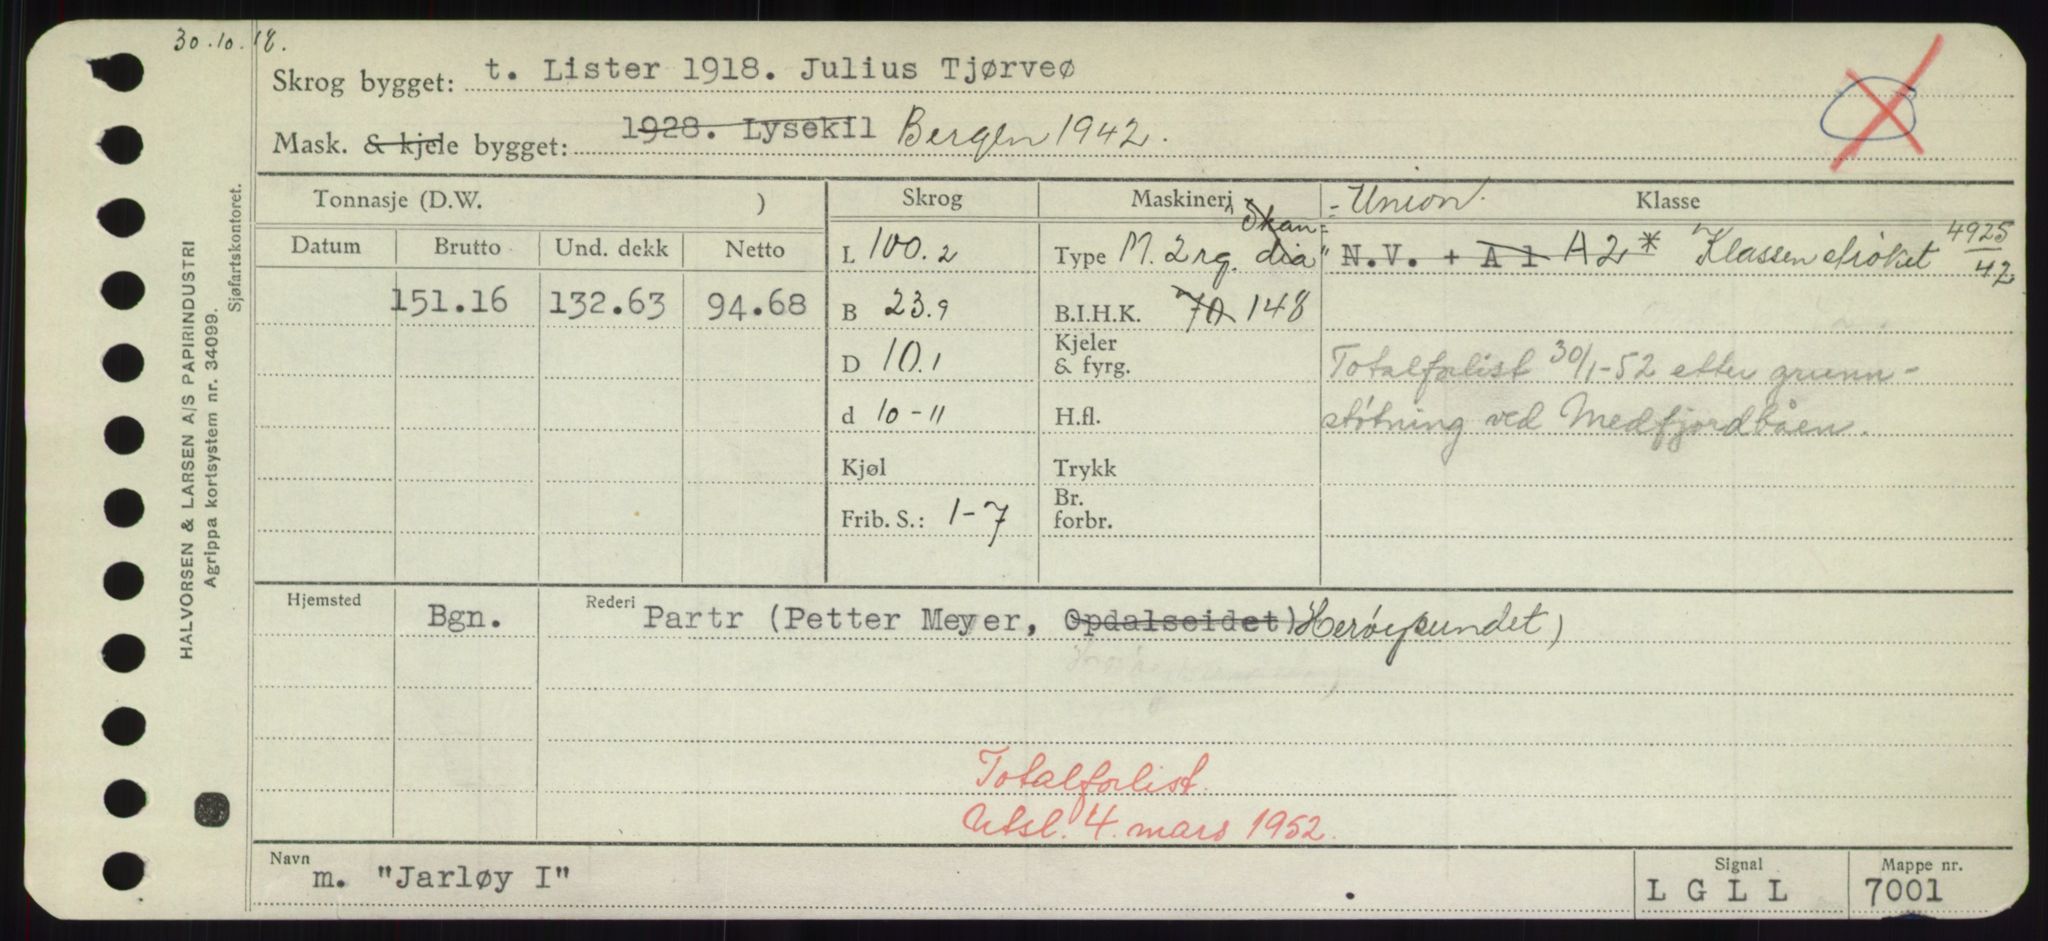 30.10.18.
Skrog bygget: t. Lister 1918. Julius Tjørveø
Mask. & kjele bygget: 1928. Lysekil Bergen 1942.
Tonnasje (D.W. )
Skrog
Maskineri
Klasse
Datum Brutto Und. dekk Netto
151.16 132.63 94.68
L 100.2
B 23.9
D 10.1
d 10-11
Kjøl
Frib. S.: 1-7
Skan= =Union.
Type M. 2 rg. dia"
B.I.H.K. 70 148
Kjeler
& fyrg.
H.fl.
Trykk
Br.
forbr.
N.V. + A 1 A2* Klassen strøket 4925/42
Totalforlist 30/1-52 etter grunn-
støtning ved Medfjordbåen.
Hjemsted Bgn. Rederi Partr (Petter Meyer, Opdalseidet) Herøysundet)
Totalforlist.
Utsl. 4. mars 1952.
Navn m. "Jarløy I"
Signal L G L L
Mappe nr. 7001
HALVORSEN & LARSEN A/S PAPIRINDUSTRI
Agrippa kortsystem nr. 34099.
Sjøfartskontoret.